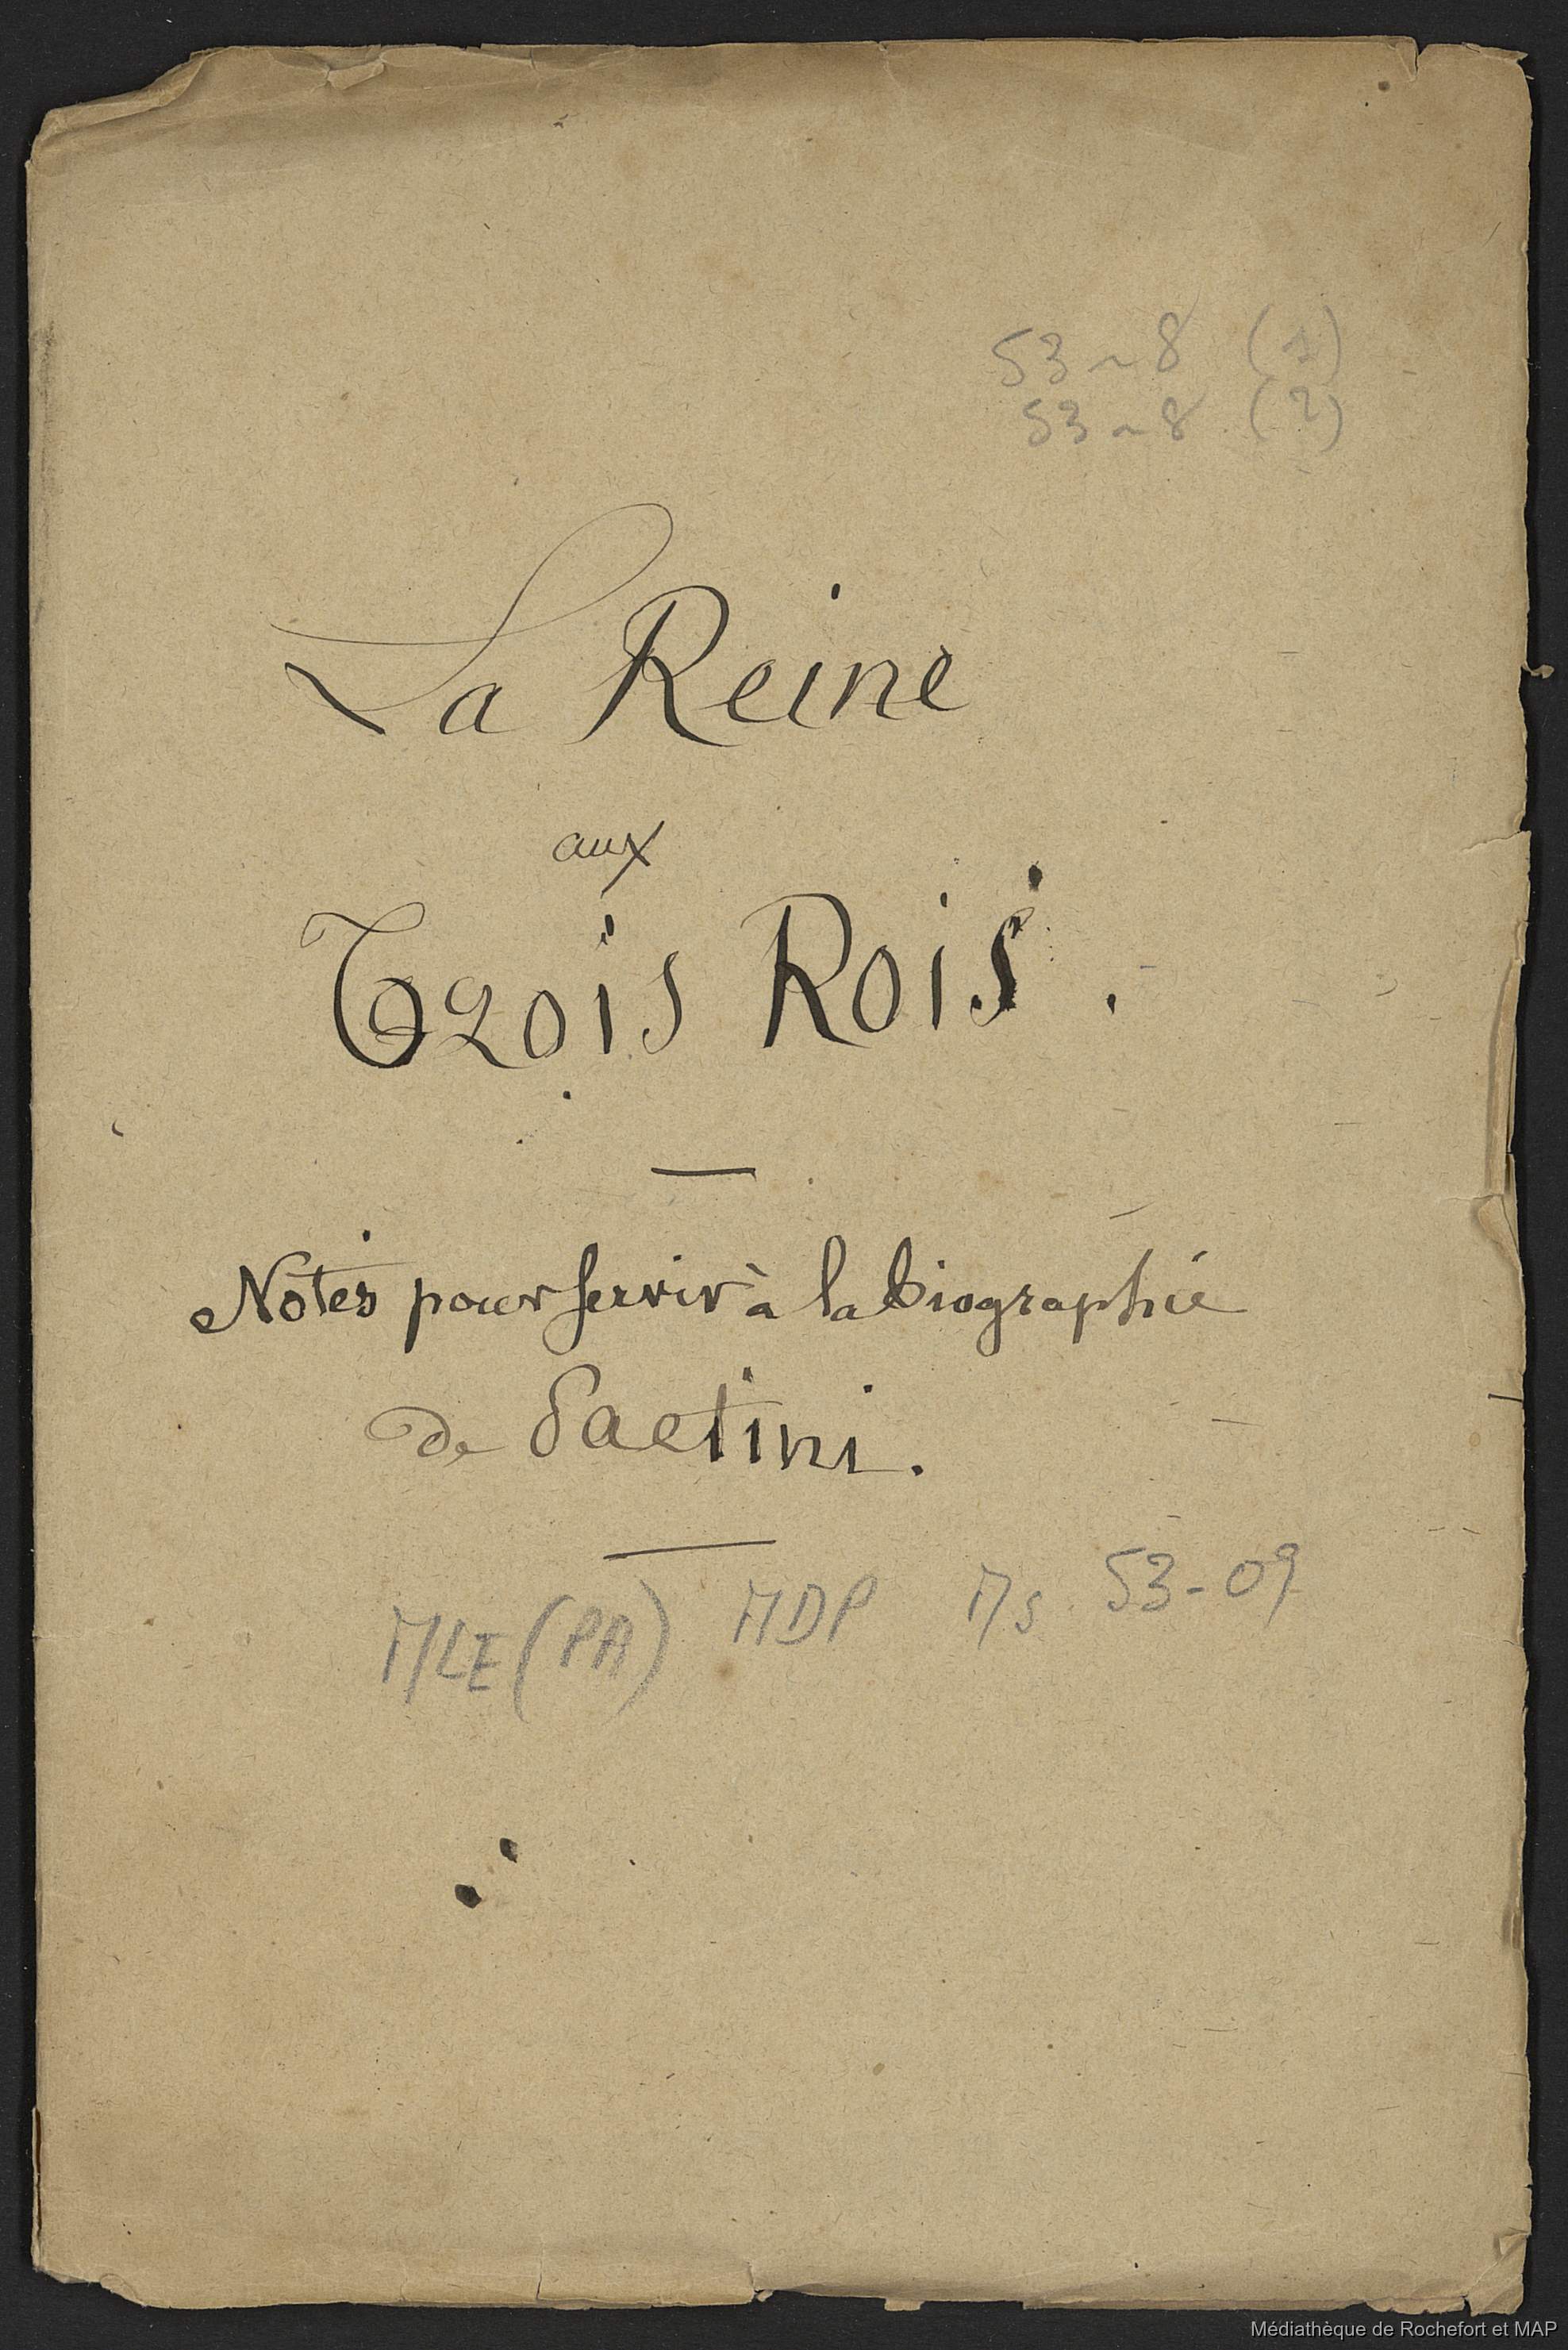 53-8 (1)
53-8 (2)
La Reine
aux
Trois Rois.
Notes pour servir à la biographie
de Saetini.
MLE (PA) MDP Ms 53-09
Médiathèque de Rochefort et MAP